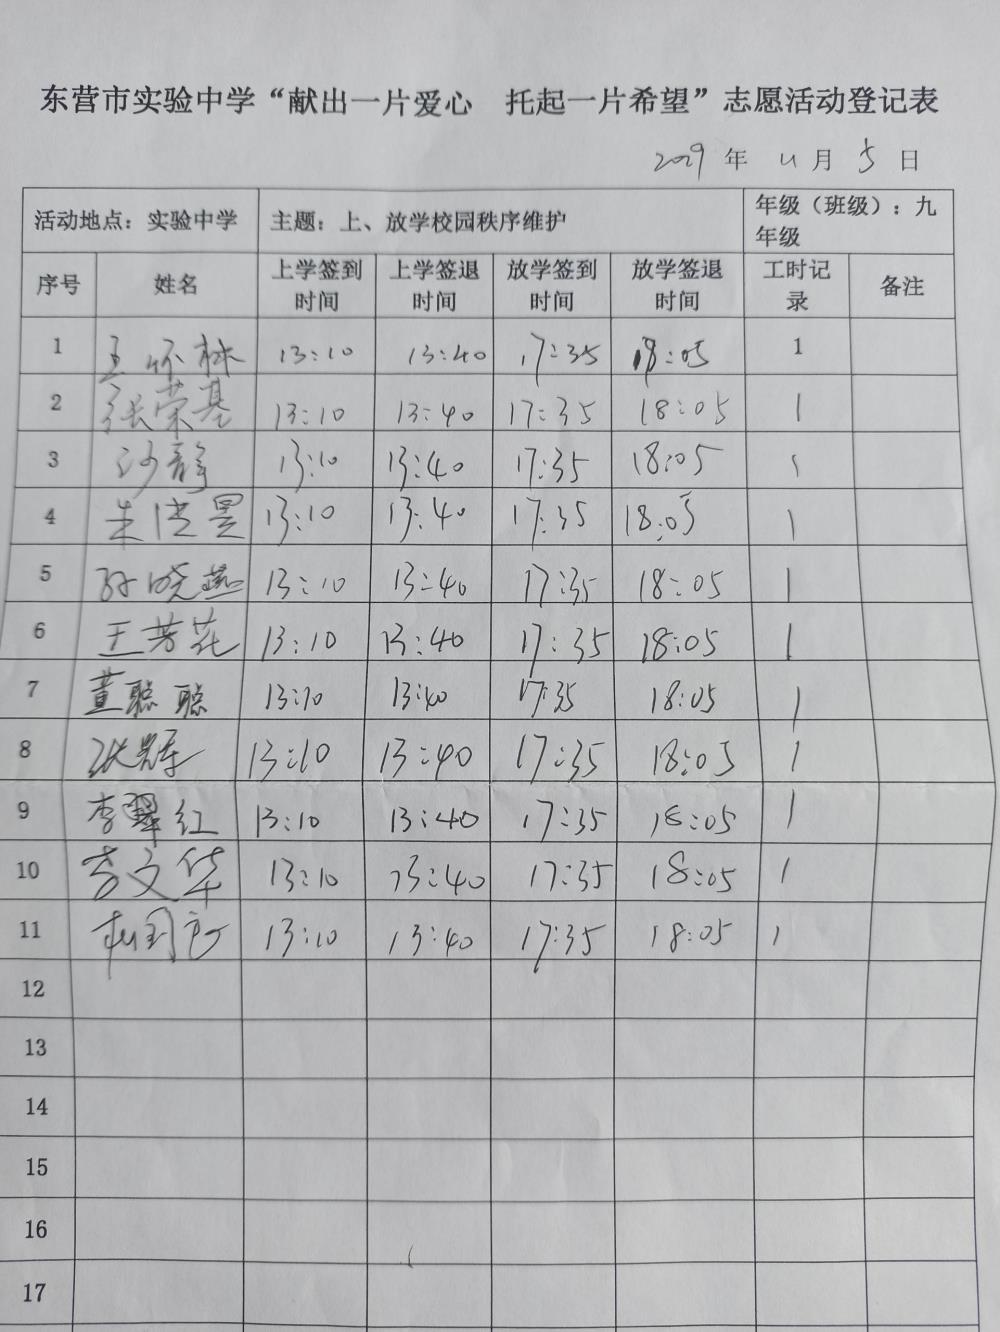 东营市实验中学“献出一片爱心 托起一片希望”志愿活动登记表
年 11月 5日
活动地点：实验中学 主题：上、放学校园秩序维护 年级（班级）：九年级
序号 姓名 上学签到时间 上学签退时间 放学签到时间 放学签退时间 工时记录 备注
1 王怀林 13:10 13:40 17:35 18:05 1
2 张荣基 13:10 13:40 17:35 18:05 1
3 沙静 13:10 13:40 17:35 18:05 1
4 朱洪昱 13:10 13:40 17:35 18:05 1
5 孙晓燕 13:10 13:40 17:35 18:05 1
6 王芳花 13:10 13:40 17:35 18:05 1
7 董聪聪 13:10 13:40 17:35 18:05 1
8 13:10 13:40 17:35 18:05 1
9 李翠红 13:10 13:40 17:35 18:05 1
10 李文华 13:10 13:40 17:35 18:05 1
11 13:10 13:40 17:35 18:05 1
12
13
14
15
16
17